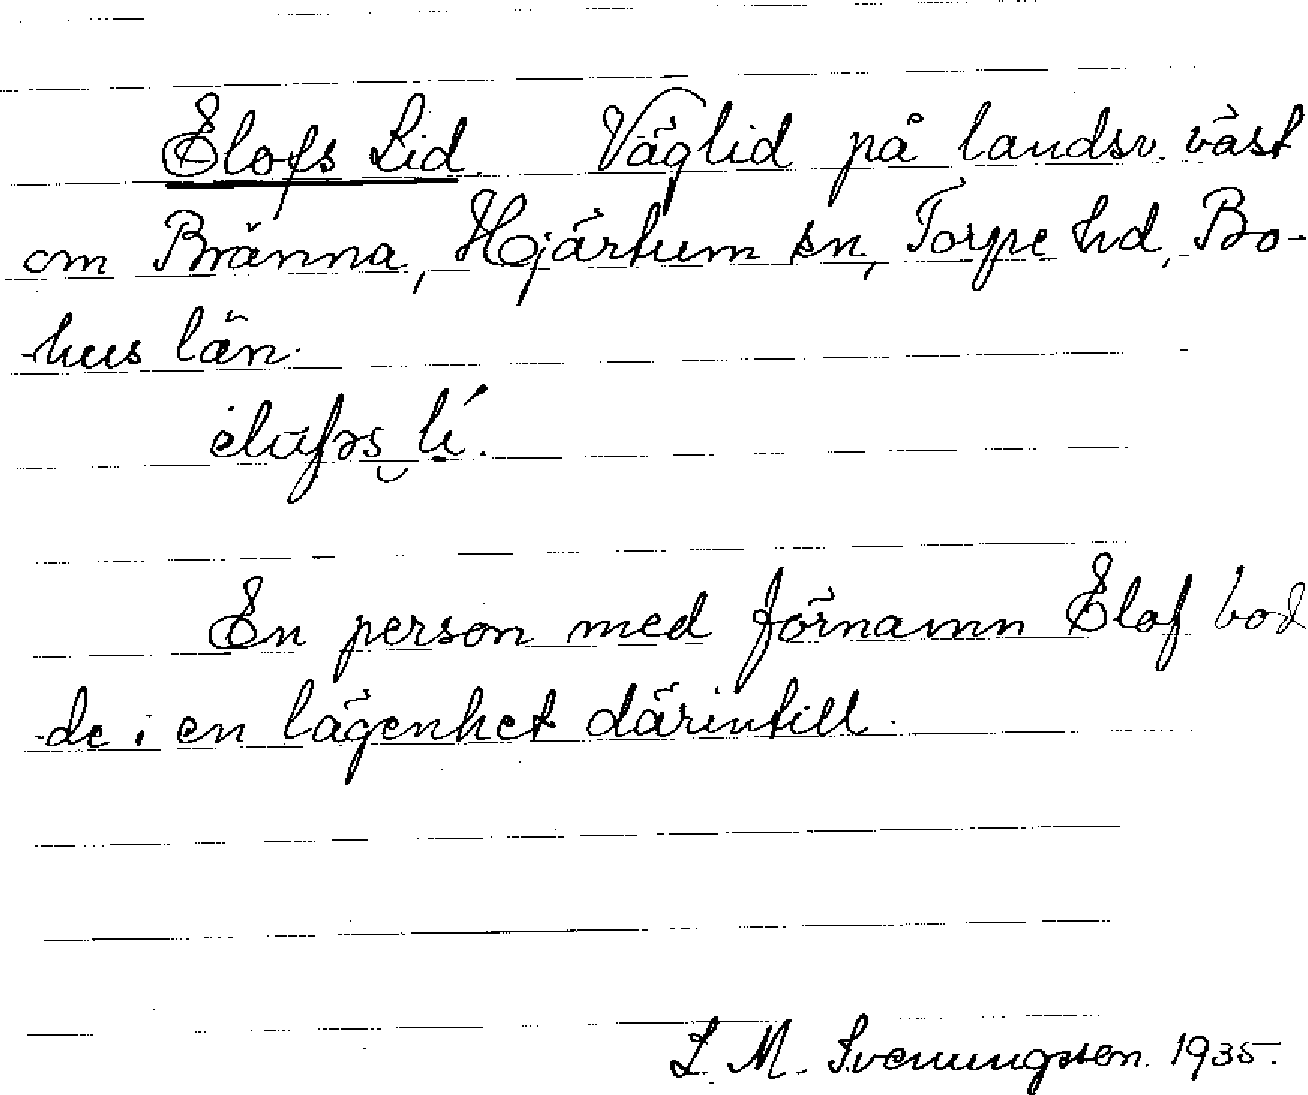 Elofs Lid. Väglid på landsv. väst
om Bränna, Hjärtum sn, Torpe hd, Bo-
hus län.
elåfəs lí.
En person med förnamn Elof bod
de i en lägenhet därintill.
L. M. Svenungsson. 1935.